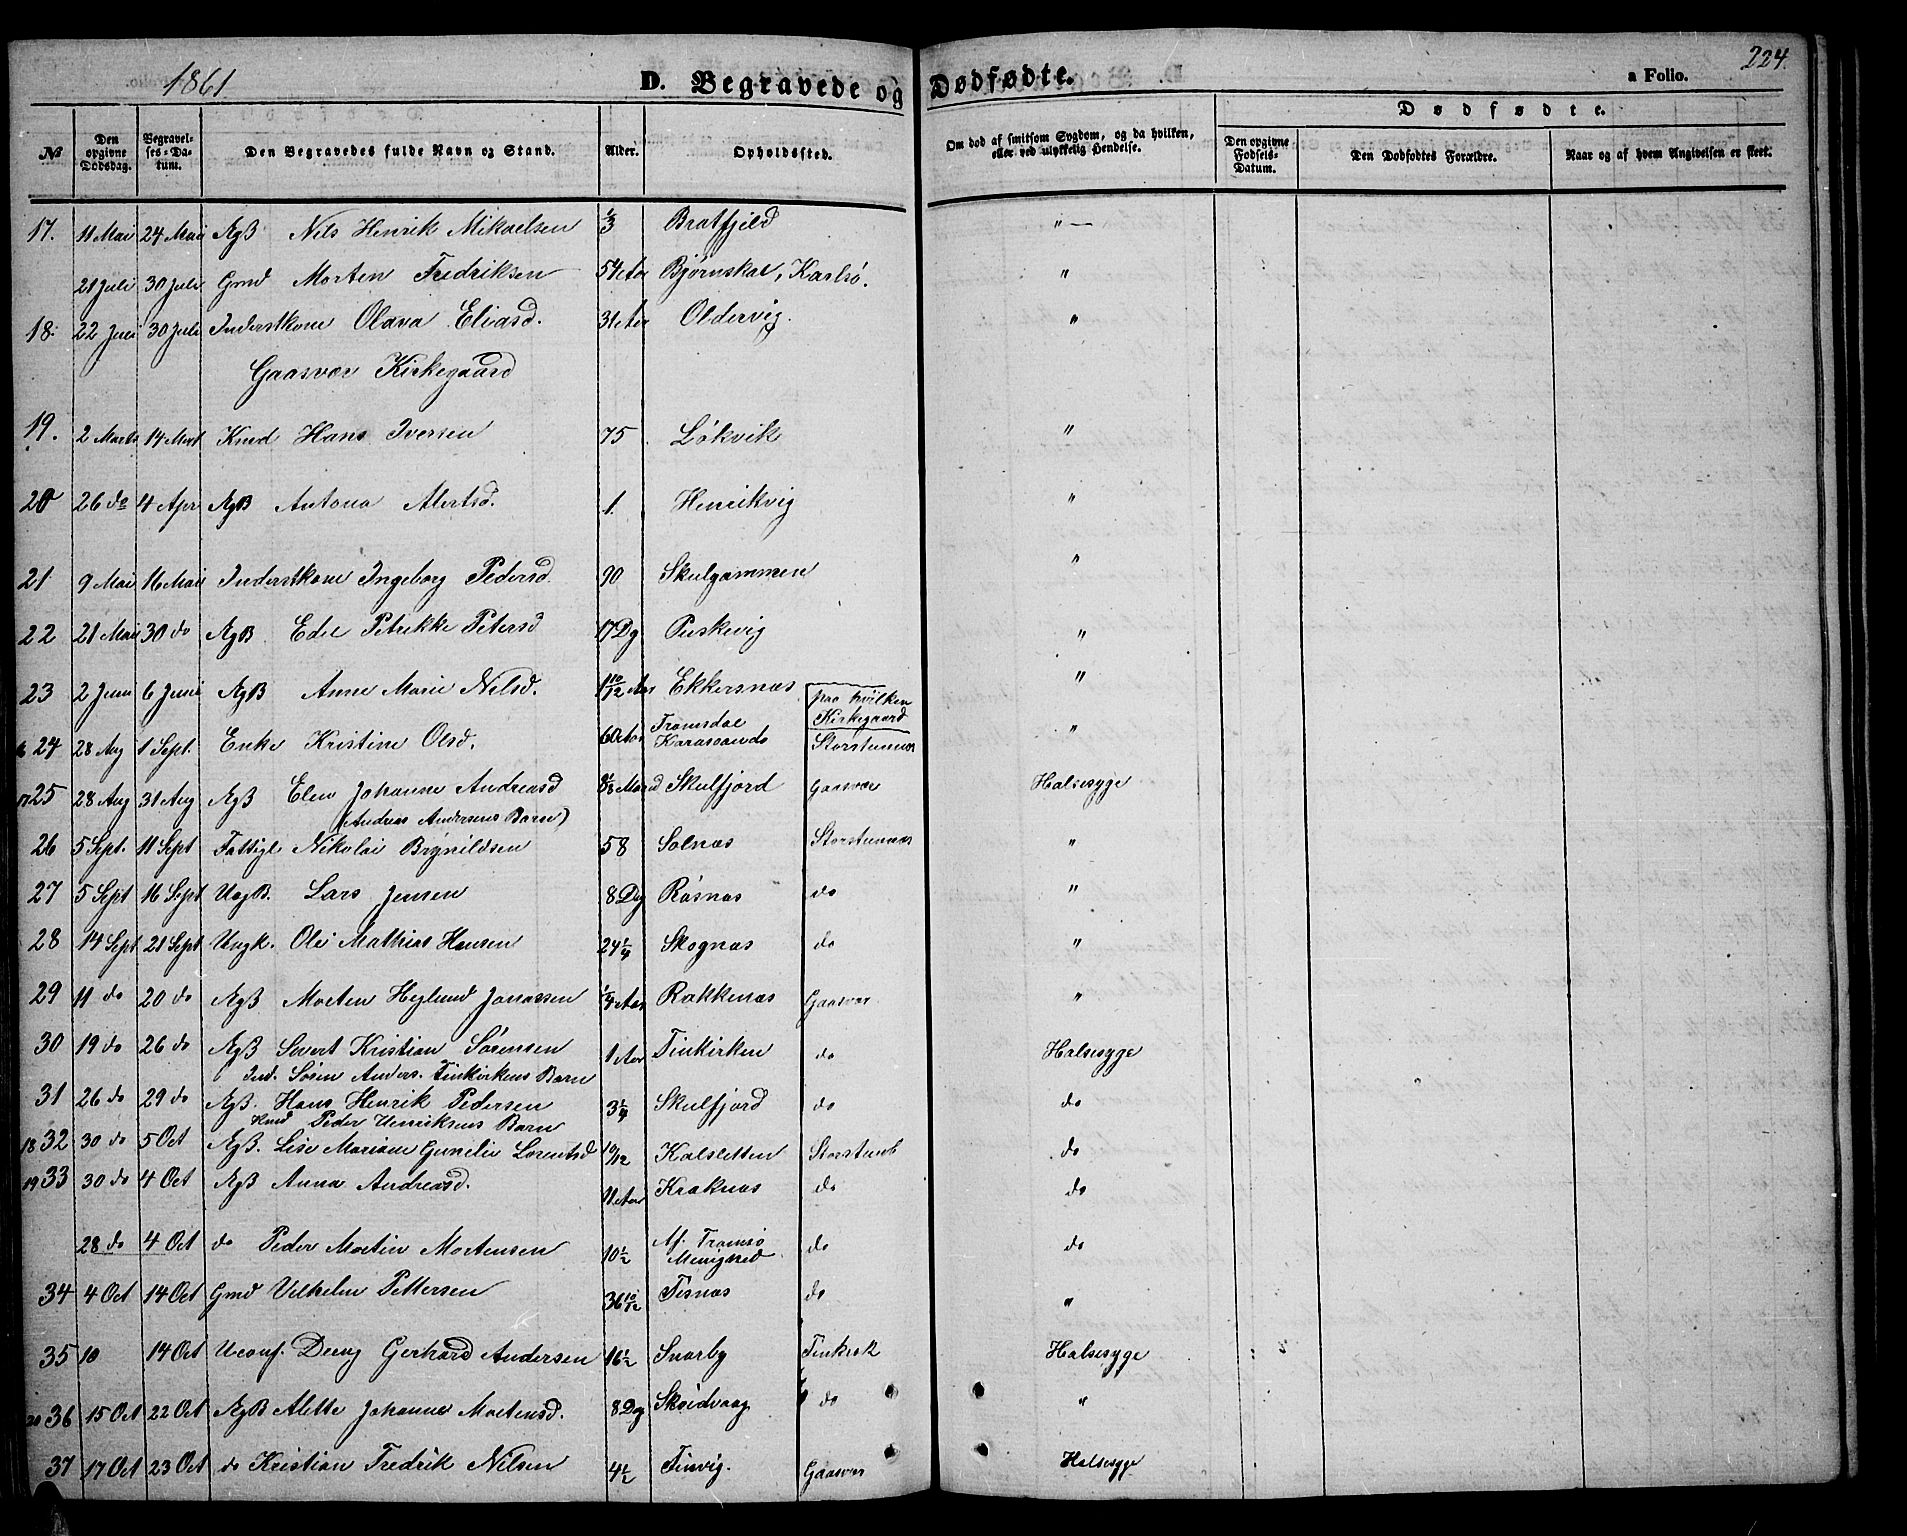 1861 D. Begravede og Dødfødte. a Folio. 224.
Dødfødte.
№ Den opgivne Dødsdag. Begravelses-Datum. Den Begravedes fulde Navn og Stand. Alder. Opholdssted. Om død af smitsom Sygdom, og da hvilken, eller ved ulykkelig Hendelse. Den opgivne Fødsels-Datum. Den Dødfødtes Forældre. Naar og af hvem Angivelsen er skeet.
17. 11 Mai 24 Mai ÆgB Nils Henrik Mikaelsen 1/3 Bratfjeld " —
21 Juli 30 Juli Gmd Morten Fredriksen 54 Aar Bjørnskar, Karlsö. "
18. 22 Juli 30 Juli Inderstkone Olava Eliasd. 31 Aar Oldervig. "
Gaasvær Kirkegaard
19. 2 Marts 14 Mart Kmd Hans Iversen 75 Lökvik "
20 26 do 4 Apr ÆgB Antona Alertsd. 1. Henrikvig "
21 9 Mai 16 Mai Inderstkone Ingeborg Pedersd. 90 Skulgammen "
22 21 Mai 30 do ÆgB Edle Petrikke Petersd 17 Dg Puskvig "
23 2 Juni 6 Juni ÆgB Anne Marie Nilsd. 1 10/12 Aar Ekkersnæs "
paa hvilken Kirkegaard
16 24 28 Aug 1 Sept. Enke Kristine Olsd. 60 Aar Tromsdal Karasvands Storstennæs "
17 25 28 Aug 31 Aug ÆgB Elen Johanne Andreasd 8 1/2 Maand Skulfjord Gaasvær Halsesyge
(Andreas Andersens Barn)
26 5 Sept. 11 Sept Fattigl Nikolai Brynildsen 58 Solnæs Storstennæs "
27 5 Sept 16 Sept UægB. Lars Jensen 8 Dg Røsnæs do "
28 14 Sept 21 Sept Ungk. Ole Mathias Hansen 24 1/4 Skognæs do "
29 11 do 20 do ÆgB Morten Heglund Jonassen 1/4 Aar Rakkenæs Gaasvær "
30 19 do 26 do ÆgB Sivert Kristian Sörensen 1 Aar Finkirken do Halsesyge
Ind. Sören Anders. Finkirkens Barn
31 26 do 29 do ÆgB. Hans Henrik Pedersen 3 1/4 Skulfjord do do
Kmd Peder Henriksens Barn
18 32 30 do 5 Oct ÆgB. Lise Mariane Gunelie Lorentsd 10/12 Kalsletten Storstennæs do
19 33 30 do 4 Oct ÆgB Anna Andreasd. 11 Aar Kraknæs do do
28 do 4 Oct do Peder Martin Mortensen 10 1/2 Af Tromsö Menighed do do
34 4 Oct 14 Oct Gmd Vilhelm Pettersen 36 10/12 Tisnæs do "
35 10 14 Oct Uconf. Gerhard Andersen 16 1/2 Snarby Finkrok Halsesyge
20 36 15 Oct 22 Oct ÆgB Alette Johanne Mortensd. 8 Dg Skeidvaag do "
37 17 Oct 23 Oct do Kristian Fredrik Nilsen 4 1/2 Finvig. Gaasvær Halsesyge